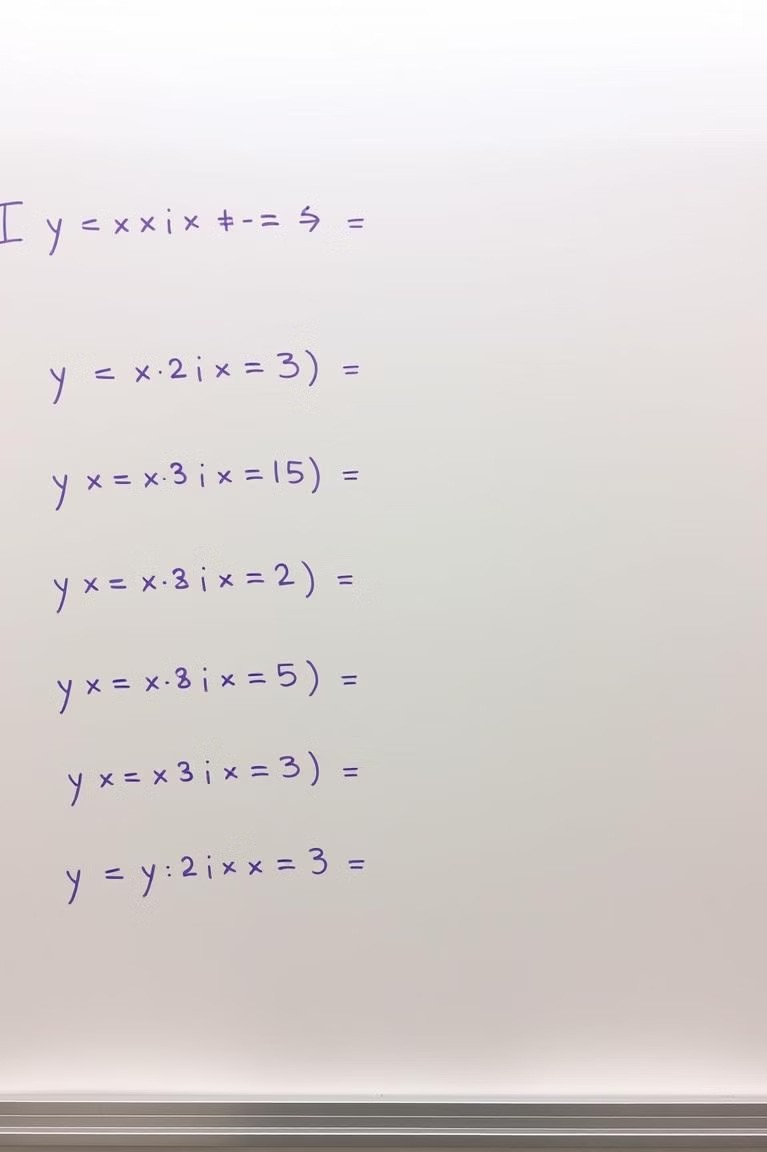 I y = x x i x ≠ - = =
y = x · 2 i x = 3) =
y x = x · 3 i x = 15) =
y x = x · 3 i x = 2) =
y x = x · 8 i x = 5) =
y x = x 3 i x = 3) =
y = y : 2 i x x = 3 =